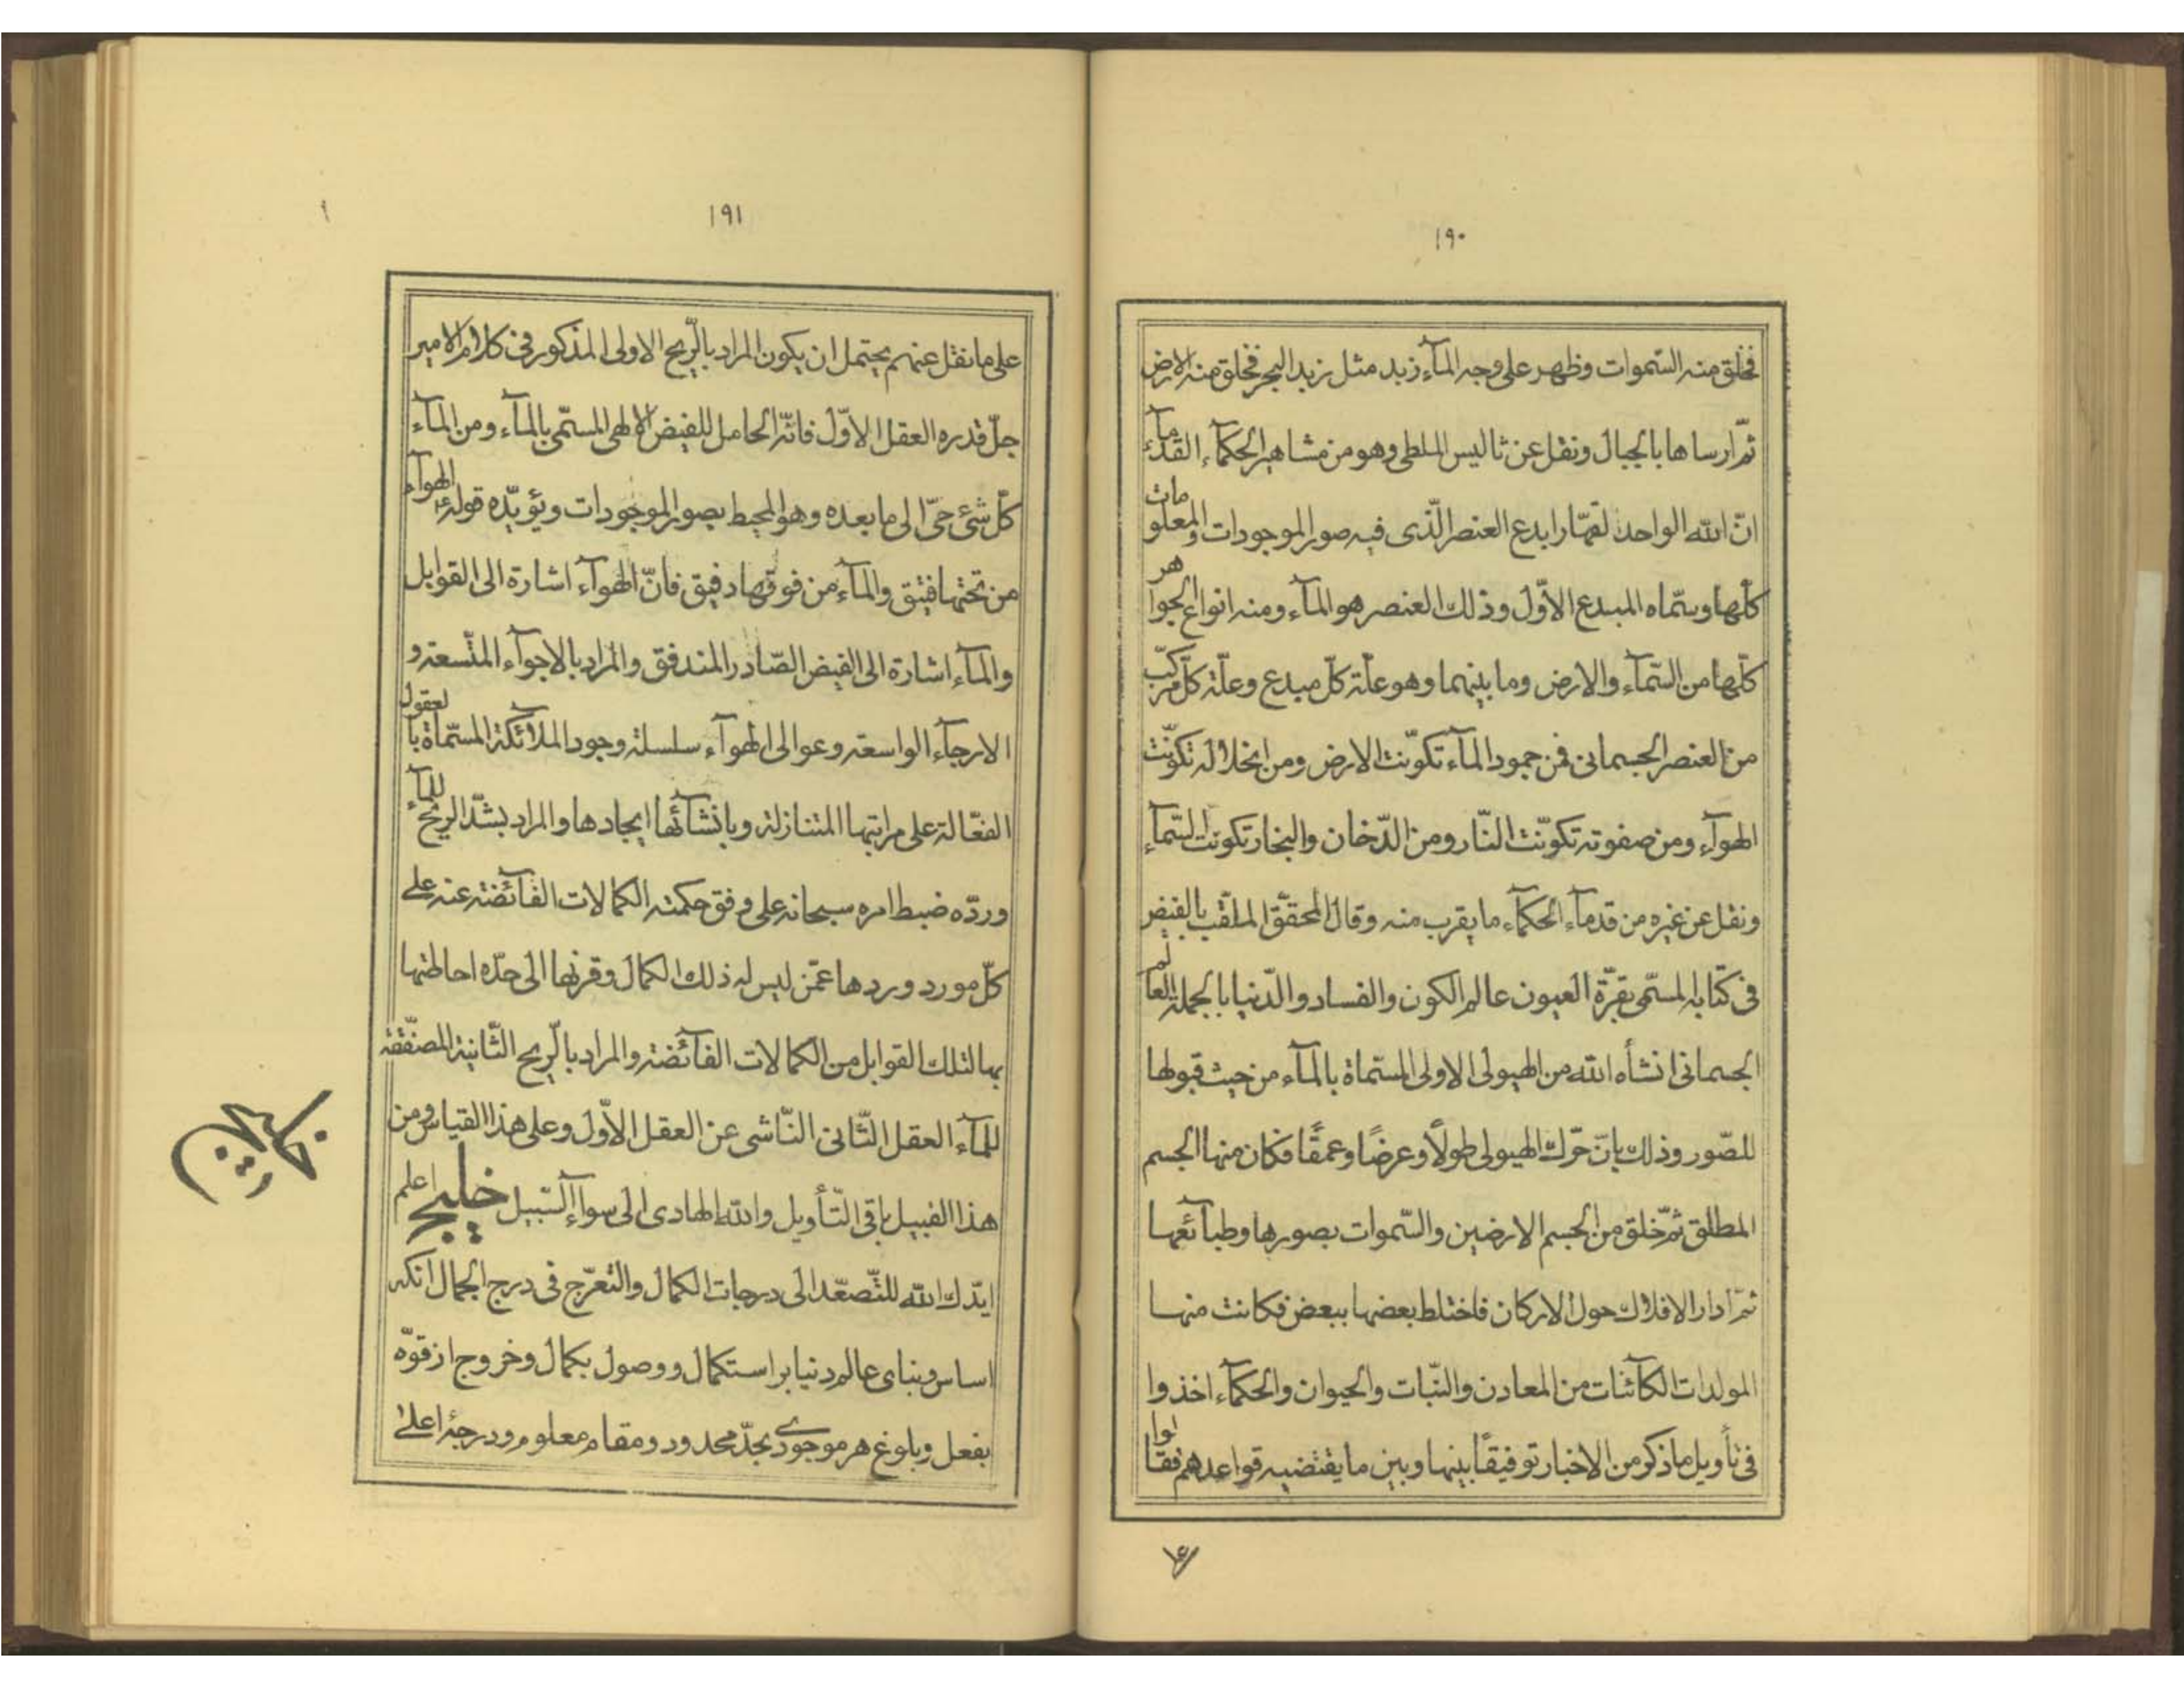 ۱۹۰
فخلق منه السّموات وظهر علی وجه المآء زبد مثل زبد البحر فخلق منه الارض
ثمّ ارساها بالجبال ونقل عن ثالیس الملطی وهو من مشاهیر الحکمآء القدمآء
انّ الله الواحد القهّار ابدع العنصر الّذی فیه صور الموجودات والمعلومات
کلّها وسمّاه المبدع الاوّل وذلک العنصر هو المآء ومنه انواع الجواهر
کلّها من السّمآء والارض وما بینهما وهو علّة کلّ مبدع وعلّة کلّ مرکّب
من العنصر الجسمانی فمن جمود المآء تکوّنت الارض ومن انحلاله تکوّنت
الهوآء ومن صفوته تکوّنت النّار ومن الدّخان والبخار تکونت السّمآء
ونقل عن غیره من قدمآء الحکمآء ما یقرب منه وقال المحقّق الملقّب بالفیض
فی کتابه المسمّی بقرّة العیون عالم الکون والفساد والدّنیا بالجملة العالم
الجسمانی انشأه الله من الهیولی الاولی المسمّاة بالمآء من حیث قبولها
للصّور وذلک بانّ حرّک الهیولی طولًا وعرضًا وعمقًا فکان منها الجسم
المطلق ثمّ خلق من الجسم الارضین والسّموات بصورها وطبآئعها
ثمّ ادار الافلاک حول الارکان فاختلط بعضها ببعض فکانت منها
المولدات الکآئنات من المعادن والنّبات والحیوان والحکمآء اخذوا
فی تأویل ما ذکر من الاخبار توفیقًا بینها وبین ما یقتضیه قواعدهم فقالوا
۱۹۱
علی ما نقل عنهم یحتمل ان یکون المراد بالرّیح الاولی المذکور فی کلام الامیر
جلّ قدره العقل الاوّل فانّه الحامل للفیض الالهی المسمّی بالمآء ومن المآء
کلّ شئ حیّ الی ما بعده وهو المحیط بصور الموجودات ویؤیّده قوله ع الهوآء
من تحتها فتیق والمآء من فوقها دفیق فانّ الهوآء اشارة الی القوابل
والمآء اشارة الی الفیض الصّادر المندفق والمراد بالاجوآء المتّسعة و
الارجآء الواسعة وعوالی الهوآء سلسلة وجود الملآئکة المسمّاة بالعقول
الفعّالة علی مراتبها المتنازلة وبانشآئها ایجادها والمراد بشدّ الریح للمآء
وردّه ضبط امره سبحانه علی وفق حکمته الکمالات الفآئضة عنه علی
کلّ مورد وردها عمّن لیس له ذلک الکمال وقرنها الی حدّه احاطتها
بما لتلک القوابل من الکمالات الفآئضة والمراد بالرّیح الثّانیة المصفّقة
للمآء العقل الثّانی النّاشی عن العقل الاوّل وعلی هذا القیاس ومن
هذا القبیل باقی التّأویل والله الهادی الی سوآء السّبیل خلیج اعلم
ایّدک الله للتّصعّد الی درجات الکمال والتعرّج فی درج الجمال انکه
اساس وبنای عالم دنیا بر استکمال ووصول بکمال وخروج از قوّه
بفعل وبلوغ هر موجودی بحدّ محدود ومقام معلوم ودرجۀ اعلی